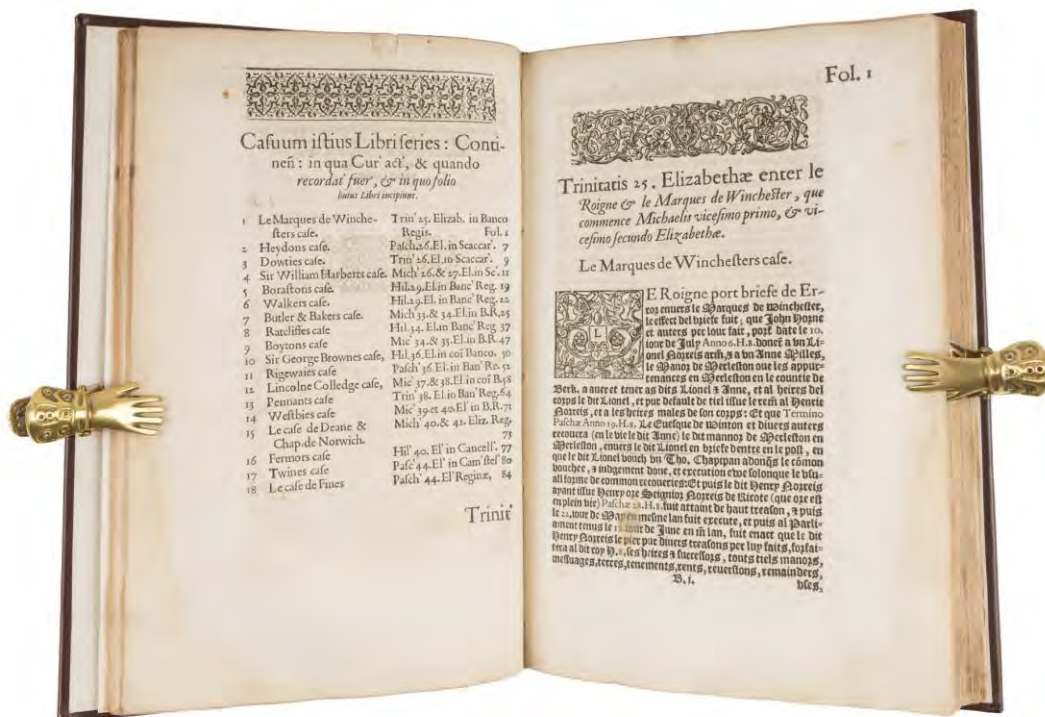 Casuum istius Libri series : Conti-
neñ : in qua Cur' act', & quando
recordat' fuer', & in quo folio
huius Libri incipiunt.
1 Le Marques de Winche- Trin' 25. Elizab. in Banco
sters case. Regis. Fol. 1
2 Heydons case. Pasch. 26. El. in Scaccar'. 7
3 Dowties case. Trin' 26. El. in Scaccar'. 9
4 Sir William Harberts case. Mich' 26. & 27. El. in Sc'. 11
5 Borastons case. Hil. 29. El. in Banc' Reg. 19
6 Walkers case. Hil. 29. El. in Banc' Reg. 22
7 Butler & Bakers case. Mich' 33. & 34. El. in B.R. 25
8 Ratcliffes case Hil. 34. El. in Banc' Reg 37
9 Boytons case Mic' 34. & 35. El. in B.R. 47
10 Sir George Brownes case, Hil. 36. El. in coī Banco. 50
11 Rigewaies case Pasch' 36. El. in Ban' Re. 52
12 Lincolne Colledge case, Mic' 37. & 38. El. in coī B. 58
13 Pennants case Trin' 38. El. in Ban' Reg. 64
14 Westbies case Mic' 39. et 40. El' in B.R. 71
15 Le case de Deane & Mich' 40. & 41. Eliz. Reg,
Chap. de Norwich. 73
16 Fermors case Hil' 40. El' in Cancell'. 77
17 Twines case Pasc' 44. El' in Cam' stel' 80
18 Le case de Fines Pasch' 44. El' Reginæ, 84
Trinit'
Fol. 1
Trinitatis 25. Elizabethæ enter le
Roigne & le Marques de Winchester, que
commence Michaelis vicesimo primo, & vi-
cesimo secundo Elizabethæ.
Le Marques de Winchesters case.
LE Roigne port briefe de Er-
ror enuers le Marques de Winchester,
le effect del briefe fuit, que John Horne
et auters per lour fait, port date le 10.
iour de July Anno 6. H.8. doneť a vn Li-
onel Norreis arm̃, & a vn Anne Milles,
le Manoꝛ de Merleston oue les appur-
tenances en Merleston en le countie de
Berk. a auer et tener as dits Lionel & Anne, et al heires del
corps le dit Lionel, et pur default de tiel issue le rem̃ al Henrie
Norreis, et a les heires males de son corps: Et que Termino
Paschæ Anno 19. H.8. Le Euesque de Winton et diuers auters
recouera (en le vie le dit Anne) le dit mannoꝛ de Merleston en
Merleston, enuers le dit Lionel en briefe dentre en le post, en
que le dit Lionel vouch vn Tho. Chapman adonq̃s le cōmon
vouchee, & iudgement done, et execution ewe solonque le vsu-
all forme de common recoueries: Et puis le dit Henry Norreis
ayant issue Henry ore Seignior Norreis de Ricote (que ore est
en plein vie) Paschæ 28. H.8. fuit attaint de haut treason, & puis
le 22. iour de May en mesme lan fuit execute, et puis al Parli-
ament tenus le iour de June en m̃ lan, fuit enact que le dit
Henry Norreis le pier pur diuers treasons per luy faits, forfai-
tera al dit roy H.8. ses heires & successors, touts tiels manors,
messuages, terres, tenements, rents, reuersions, remainders,
B. j. vses,